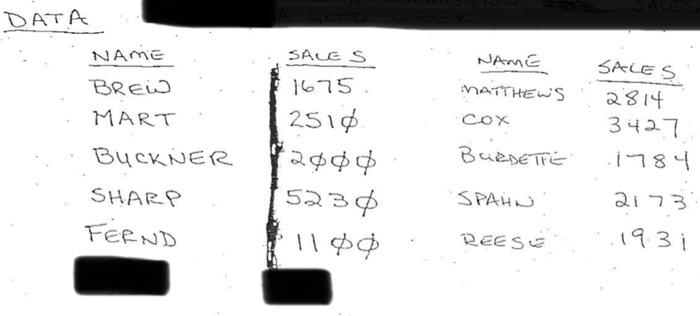 SALES
DATA A GOOD WEEK
NAME SALES NAME SALES
BREW 1675 MATTHEWS 2814
MART 251Ø COX 3427
BUCKNER 2ØØØ BURDETTE 1784
SHARP 523Ø SPAHN 2173
FERND 11ØØ REESE 1931